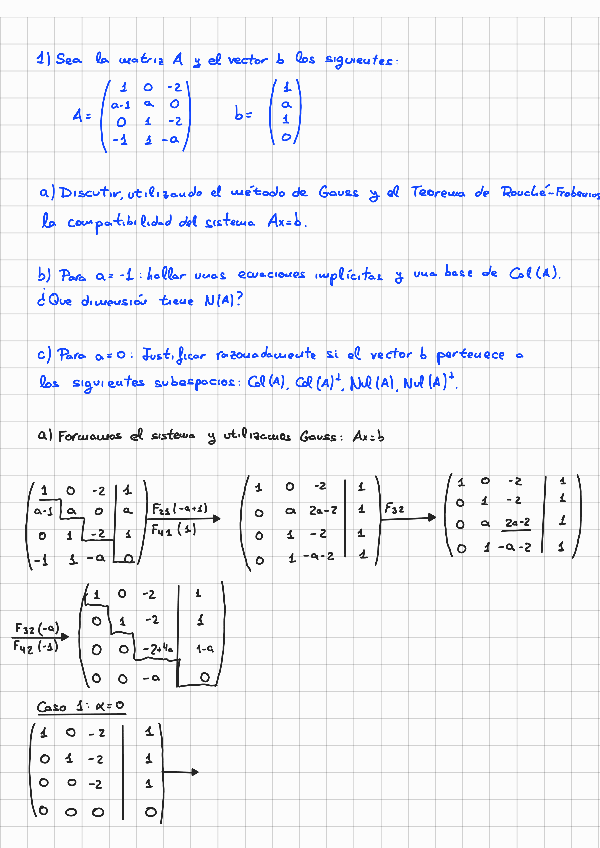 1) Sea la matriz A y el vector b los siguientes:
A = ( 1 0 -2 ; a-1 a 0 ; 0 1 -2 ; -1 1 -a ) b = ( 1 ; a ; 1 ; 0 )
a) Discutir, utilizando el método de Gauss y el Teorema de Rouché-Frobenius
la compatibilidad del sistema Ax=b.
b) Para a = -1 : hallar unas ecuaciones implícitas y una base de Col (A).
¿Que dimensión tiene N(A)?
c) Para a = 0 : Justificar razonadamente si el vector b pertenece a
los siguientes subespacios: Col (A), Col (A)⊥, Nul (A), Nul (A)⊥.
a) Formamos el sistema y utilizamos Gauss: Ax=b
( 1 0 -2 | 1 ; a-1 a 0 | a ; 0 1 -2 | 1 ; -1 1 -a | 0 ) F21 (-a+1) F41 (1) → ( 1 0 -2 | 1 ; 0 a 2a-2 | 1 ; 0 1 -2 | 1 ; 0 1 -a-2 | 1 ) F32 → ( 1 0 -2 | 1 ; 0 1 -2 | 1 ; 0 a 2a-2 | 1 ; 0 1 -a-2 | 1 )
F32 (-a) F42 (-1) → ( 1 0 -2 | 1 ; 0 1 -2 | 1 ; 0 0 -2+4a | 1-a ; 0 0 -a | 0 )
Caso 1: α=0
( 1 0 -2 | 1 ; 0 1 -2 | 1 ; 0 0 -2 | 1 ; 0 0 0 | 0 ) →